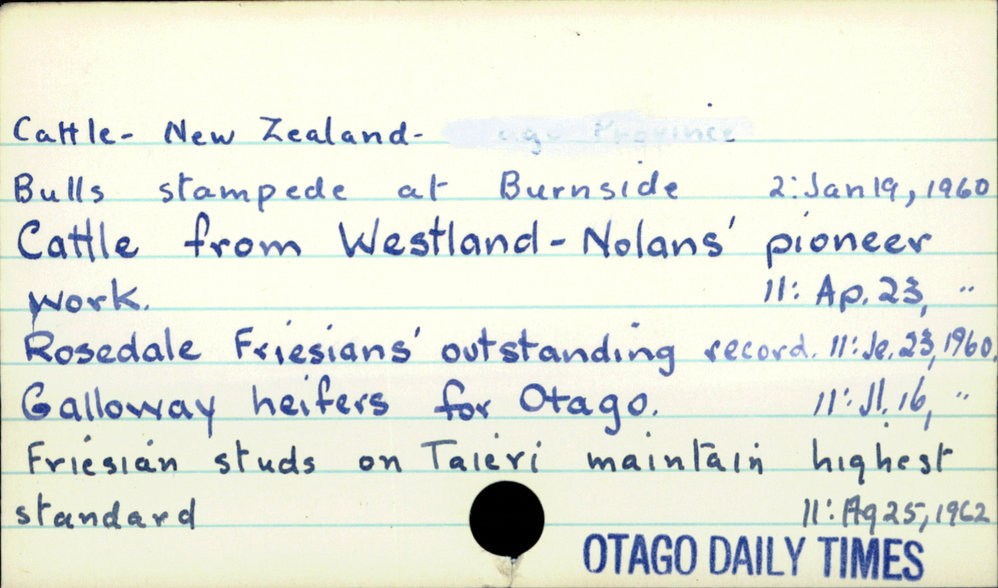 Cattle- New Zealand- Province
Bulls stampede at Burnside 2: Jan 19, 1960
Cattle from Westland - Nolans' pioneer
work. 11: Ap. 23, "
Rosedale Friesians' outstanding record. 11: Je. 23, 1960.
Galloway heifers for Otago. 11: Jl. 16, "
Friesian studs on Taieri maintain highest
standard 11: Ag 25, 1962
OTAGO DAILY TIMES